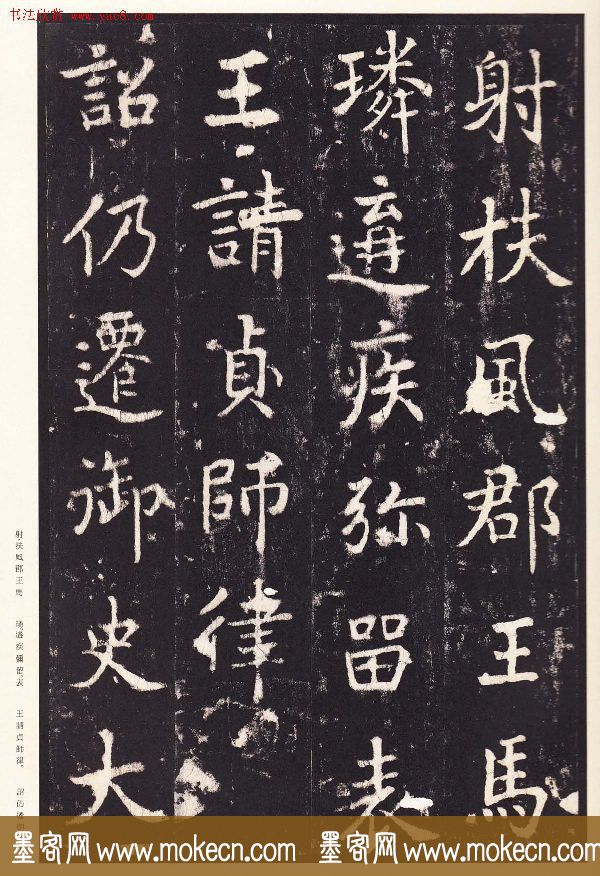 书法欣赏 www.yac8.com
射扶風郡王馬
璘遘疾弥留表
王請貞師律
詔仍遷御史大
射扶風郡王馬 璘遘疾彌留。表 王請貞師律。 詔仍遷御
墨客网 www.mokecn.com 墨客网 www.mokecn.com